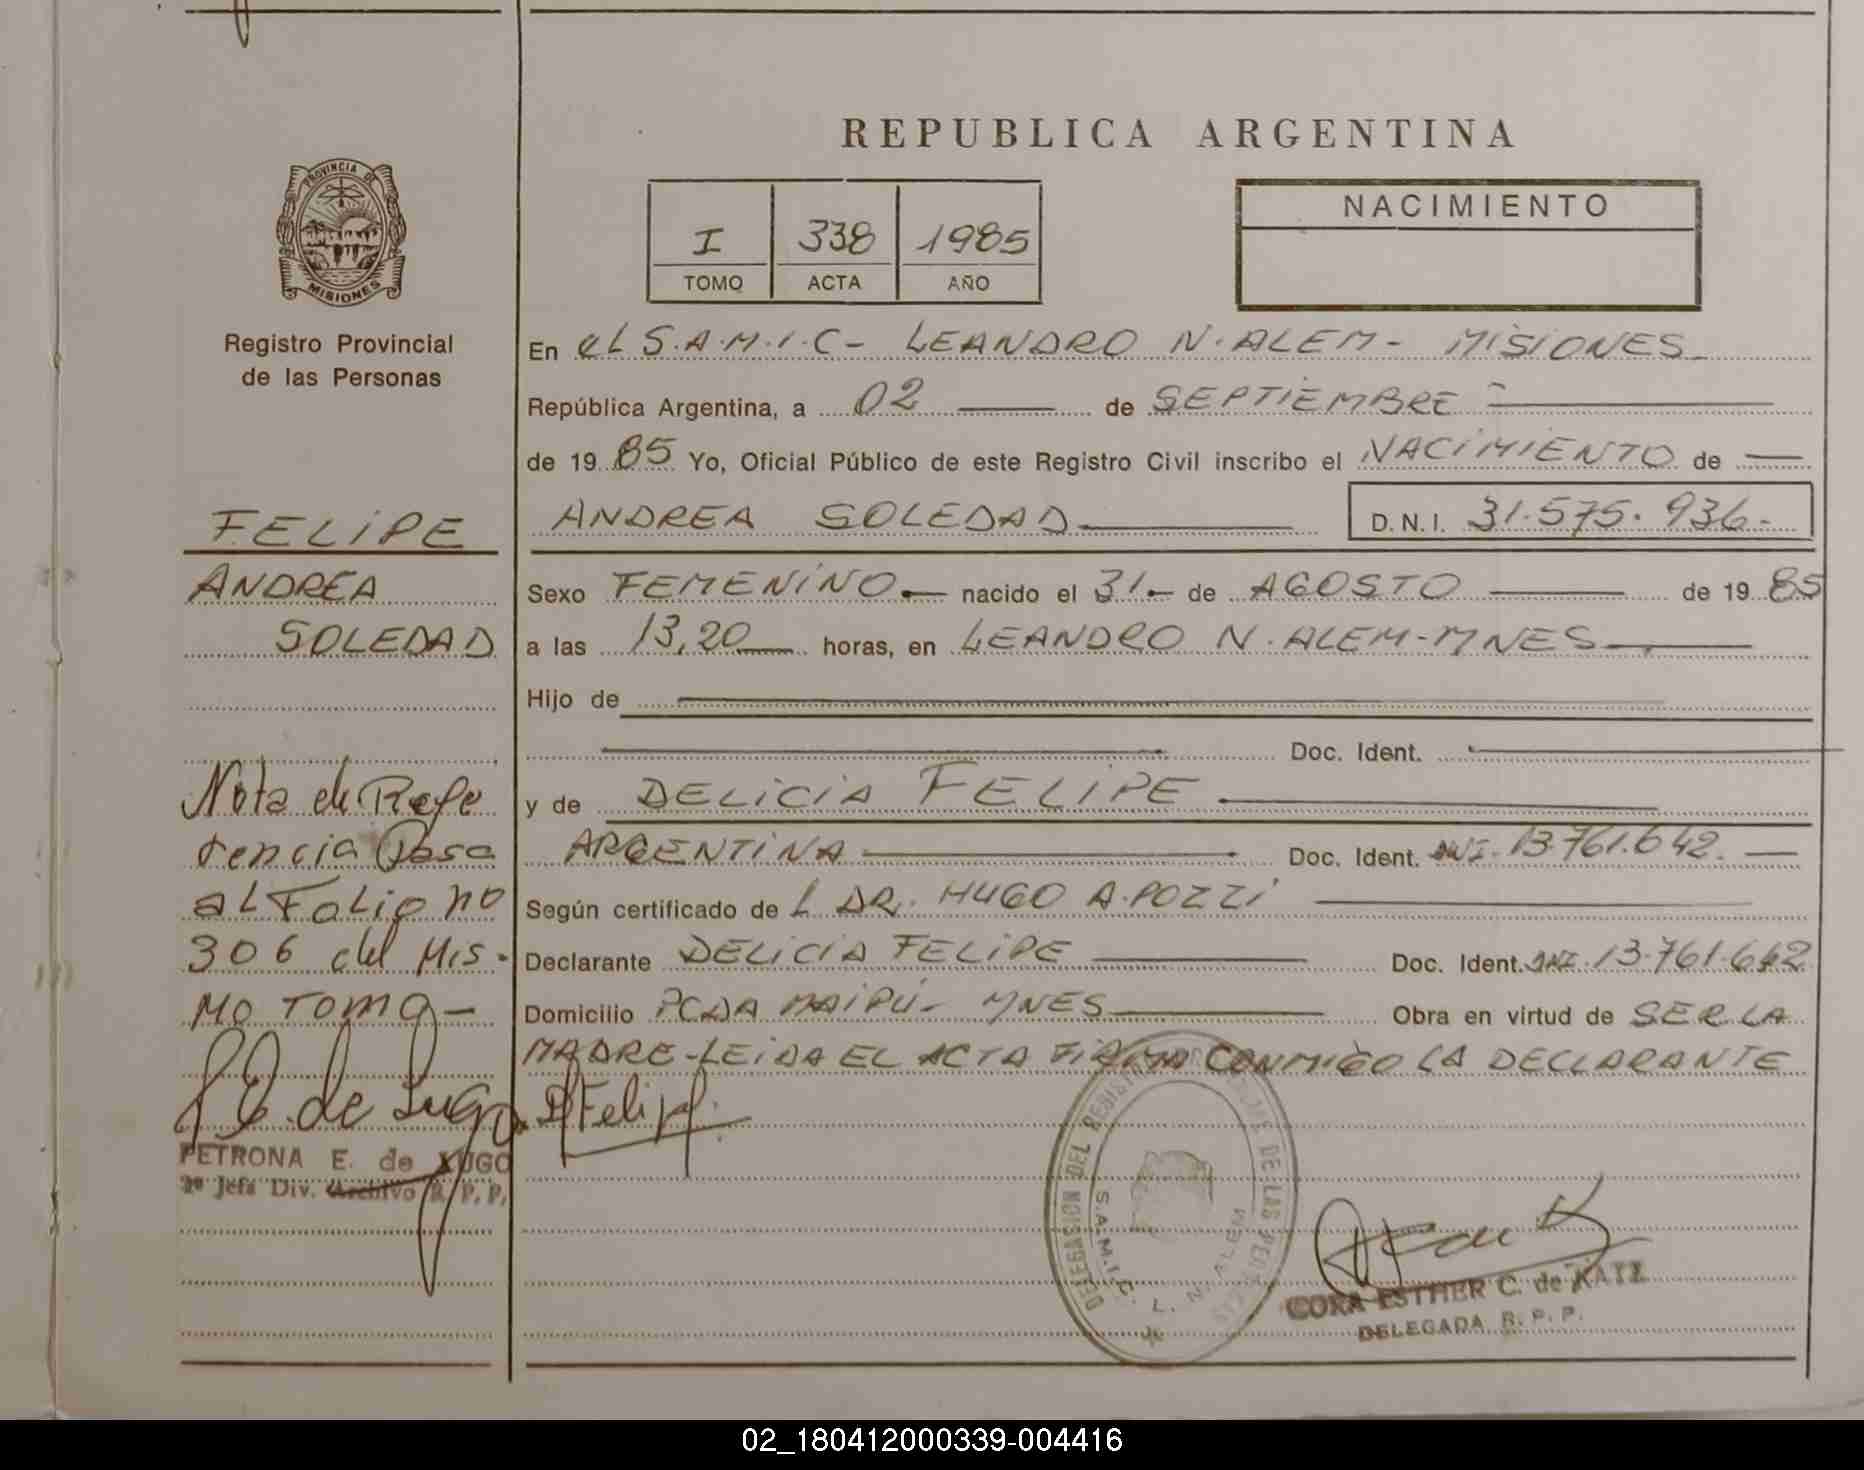 REPUBLICA ARGENTINA
PROVINCIA DE
MISIONES
Registro Provincial
de las Personas
I 338 1985
TOMO ACTA AÑO
NACIMIENTO
En el S.A.M.I.C- LEANDRO N. ALEM- MISIONES
República Argentina, a 02 de SEPTIEMBRE
de 1985 Yo, Oficial Público de este Registro Civil inscribo el NACIMIENTO de
ANDREA SOLEDAD D.N.I. 31.575.936-
Sexo FEMENINO nacido el 31 de AGOSTO de 1985
a las 13,20 horas, en LEANDRO N. ALEM-MNES
Hijo de
Doc. Ident.
y de DELICIA FELIPE
ARGENTINA Doc. Ident. DNI. 13.761.642.
Según certificado de L DR. HUGO A. POZZI
Declarante DELICIA FELIPE Doc. Ident. DNI. 13.761.642
Domicilio PCDA MAIPÚ- MNES Obra en virtud de SER LA
MADRE-LEIDA EL ACTA FIRMA CONMIGO LA DECLARANTE
D Felipe
FELIPE
ANDREA
SOLEDAD
Nota de Refe
rencia Pasa
al Folio no
306 del Mis-
mo Tomo-
P. E. de Lugo
PETRONA E. de LUGO
2º Jefa Div. Archivo R. P. P.
DELEGACION DEL REGISTRO DE LAS PERSONAS
S.A.M.I.C. L. N. ALEM
CORA ESTHER C. de KATZ
DELEGADA R. P. P.
02_180412000339-004416